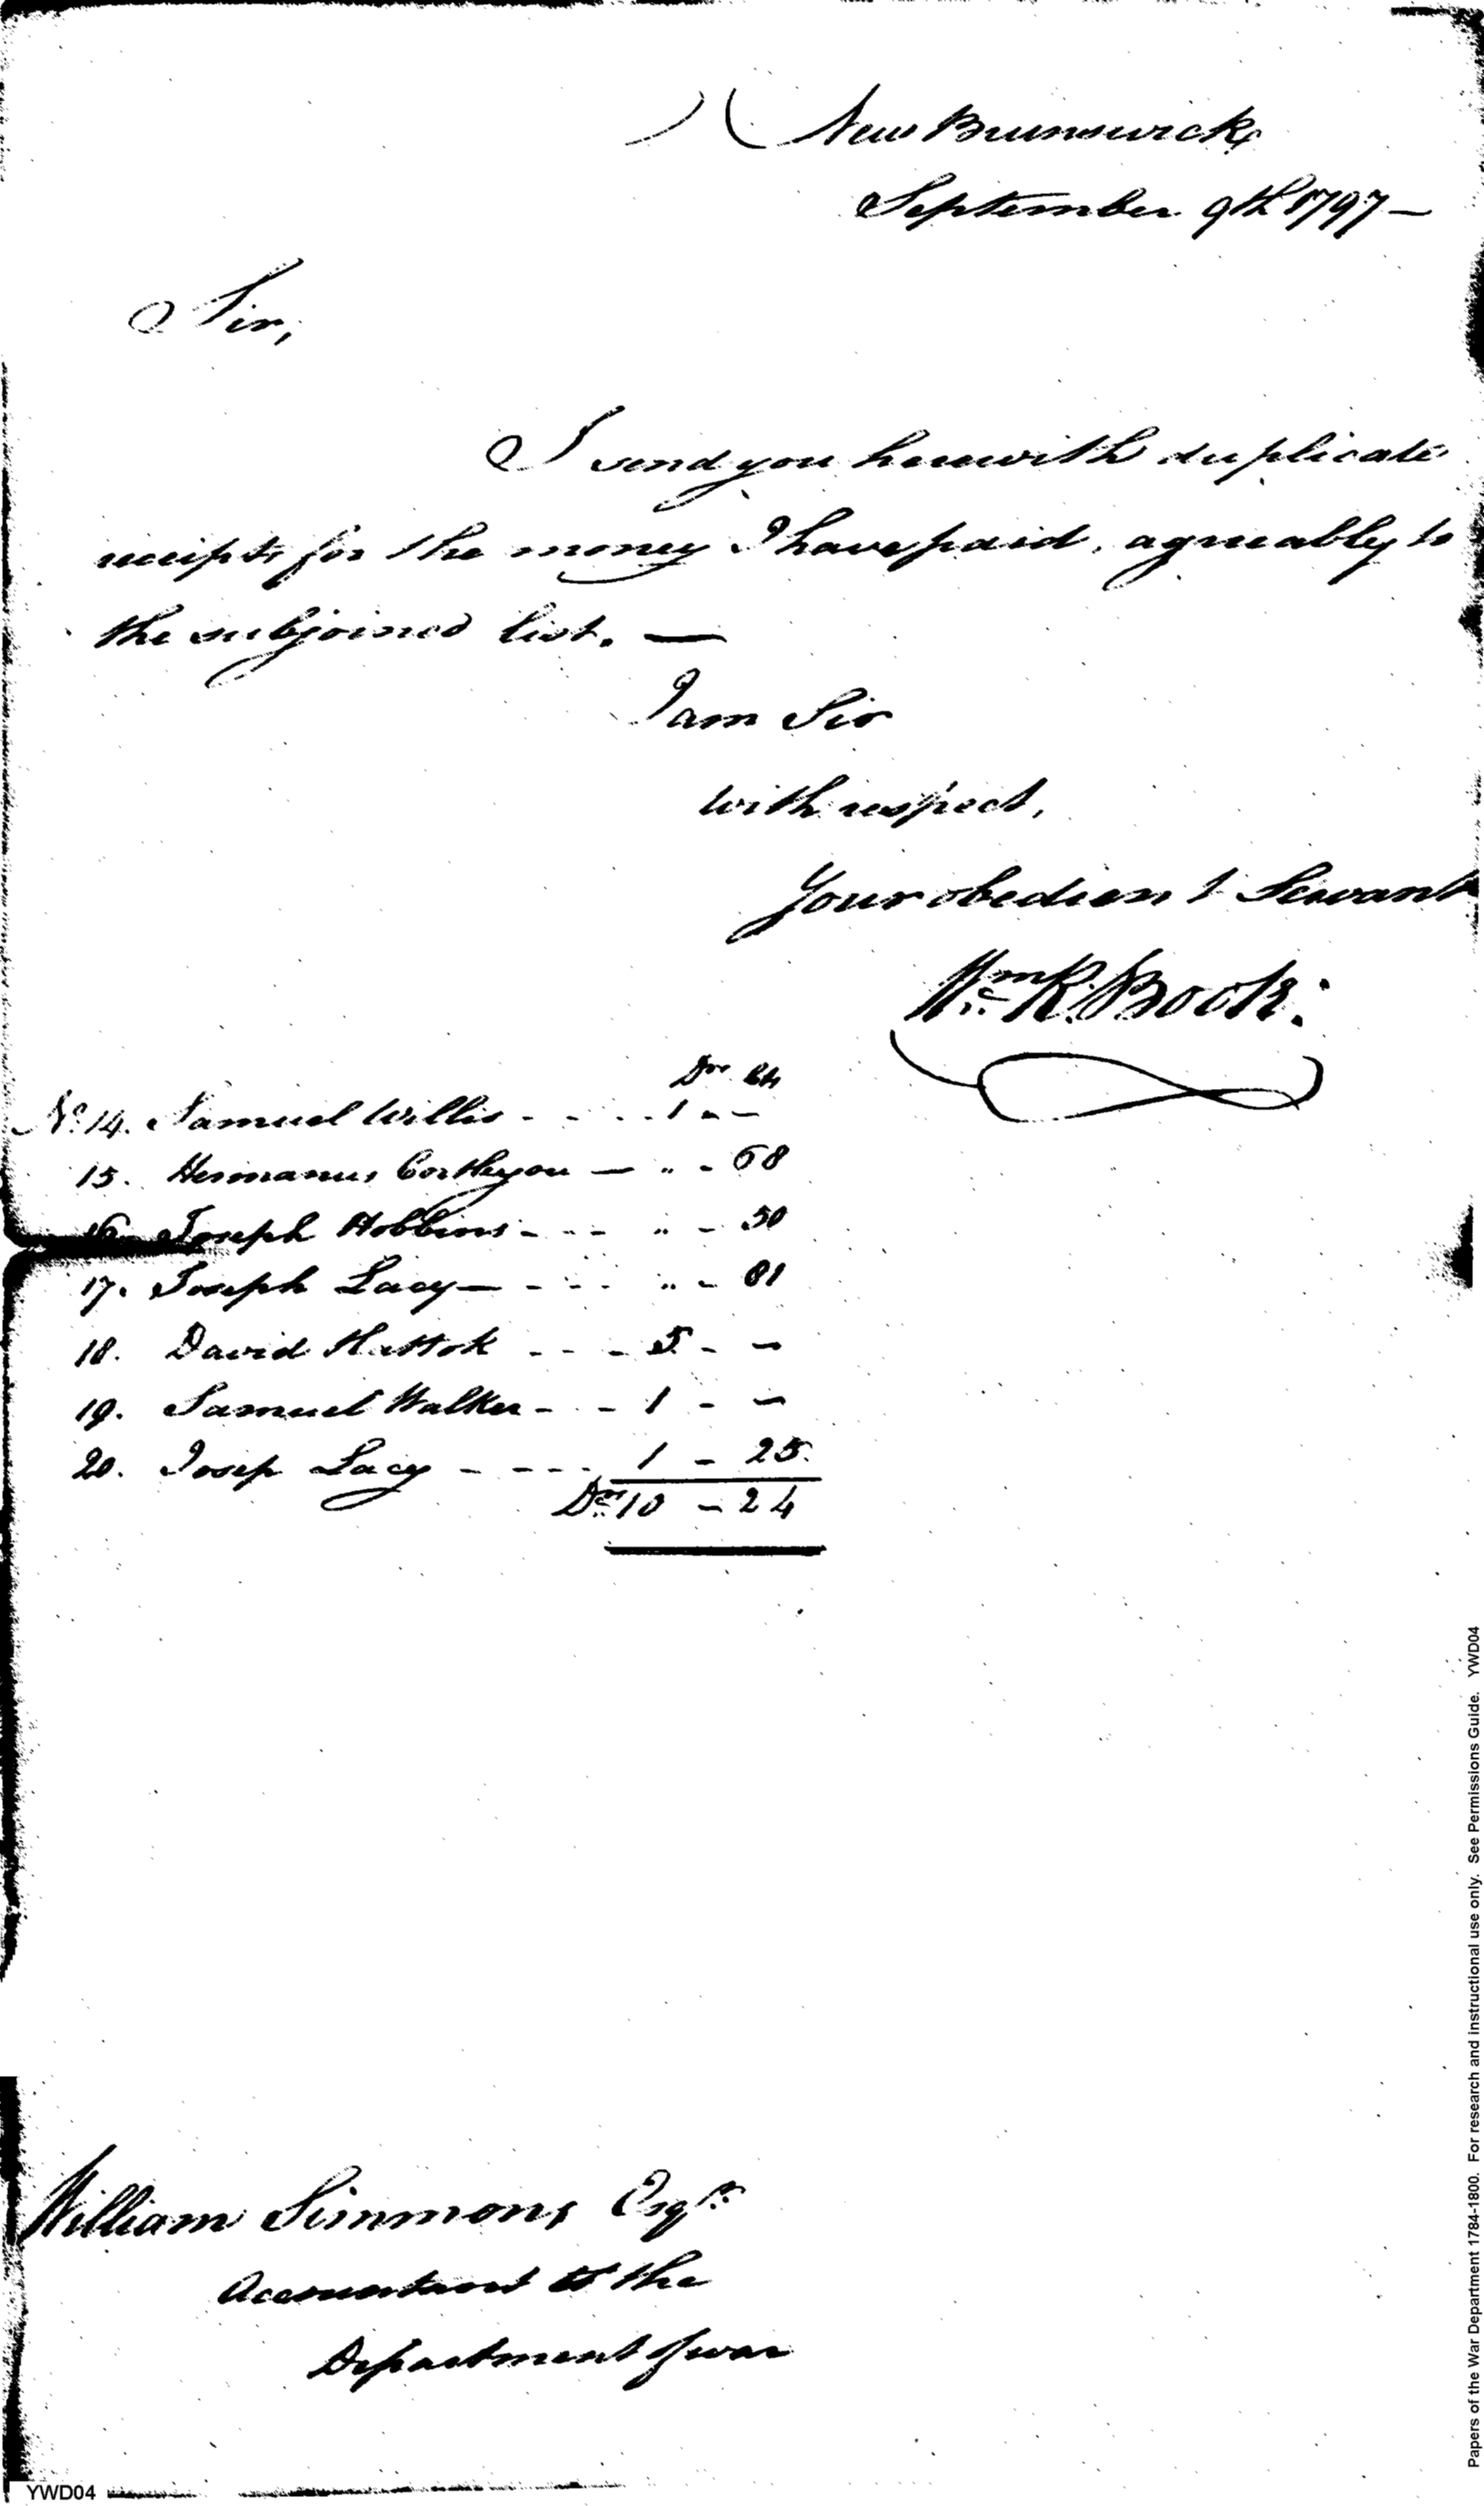 New Brunswick
September 9th 1797 —
Sir,
I send you herewith duplicate
receipts for the money I have paid, agreeably to
the subjoined list. —
I am Sir
with respect,
Your obedient Servant
Wm R. Boote.
Drs Cts
No. 14. Samuel Willis - - - - 1 - —
15. Hermanus Cortleyou — " - 68
16. Joseph Hobbins - - - " - 50
17. Joseph Lacy — - - - " - 81
18. David Hattok - - - 5 - —
19. Samuel Walker - - - 1 - —
20. Josep Lacy - - - - 1 - 25.
Drs 10 - 24
William Simmons Esqr.
Accountant to the
Department of war
YWD04
Papers of the War Department 1784-1800. For research and instructional use only. See Permissions Guide. YWD04